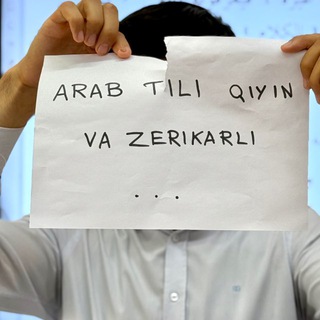 ARAB TILI QIYIN
VA ZERIKARLI
...